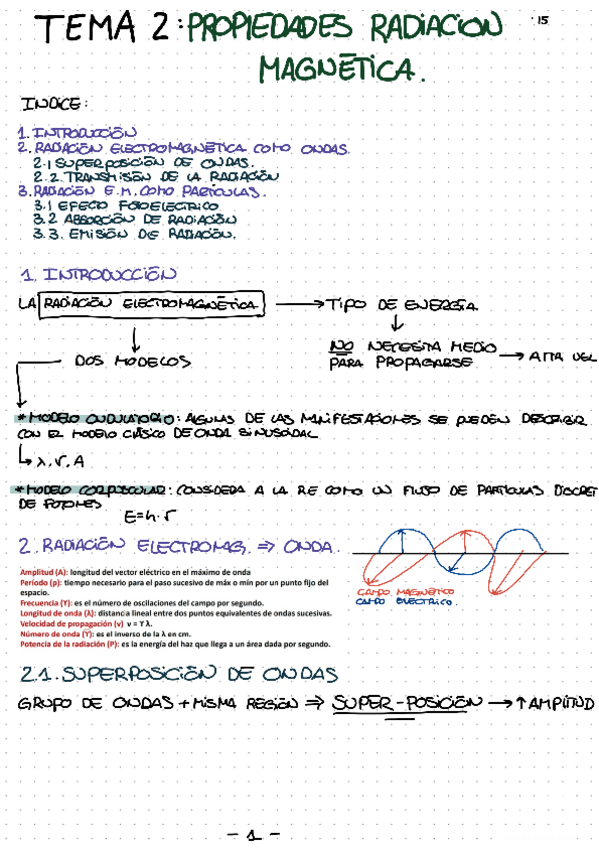 TEMA 2: PROPIEDADES RADIACION
15
MAGNĒTICA.
INDICE:
1. INTRODUCCIÓN
2. RADIACIÓN ELECTROMAGNÉTICA COMO ONDAS.
2.1 SUPERPOSICIÓN DE ONDAS.
2.2. TRANSMISIÓN DE LA RADIACIÓN
3. RADIACIÓN E.M. COMO PARTICULAS.
3.1 EFECTO FOTOELECTRICO
3.2 ABSORCIÓN DE RADIACIÓN
3.3. EMISIÓN DE RADIACIÓN.
1. INTRODUCCIÓN
LA RADIACIÓN ELECTROMAGNÉTICA → TIPO DE ENERGÍA
DOS MODELOS
NO NECESITA MEDIO
PARA PROPAGARSE → ALTA VEL
* MODELO ONDULATORIO: ALGUNAS DE LAS MANIFESTACIONES SE PUEDEN DESCRIBIR
CON EL MODELO CLÁSICO DE ONDA SINUSOIDAL
↳ λ, ν, A
* MODELO CORPUSCULAR: CONSIDERA A LA RE COMO UN FLUJO DE PARTICULAS DISCRET
DE FOTONES
E=h·ν
2. RADIACIÓN ELECTROMAG. ⇒ ONDA.
Amplitud (A): longitud del vector eléctrico en el máximo de onda
Período (p): tiempo necesario para el paso sucesivo de máx o mín por un punto fijo del
espacio.
Frecuencia (Y): es el número de oscilaciones del campo por segundo.
Longitud de onda (λ): distancia lineal entre dos puntos equivalentes de ondas sucesivas.
Velocidad de propagación (v) v = Y λ.
Número de onda (Ῡ): es el inverso de la λ en cm.
Potencia de la radiación (P): es la energía del haz que llega a un área dada por segundo.
CAMPO MAGNETICO
CAMPO ELECTRICO.
2.1. SUPERPOSICIÓN DE ONDAS
GRUPO DE ONDAS + MISMA REGIÓN ⇒ SUPER-POSICIÓN → ↑ AMPLITUD
- 1 -